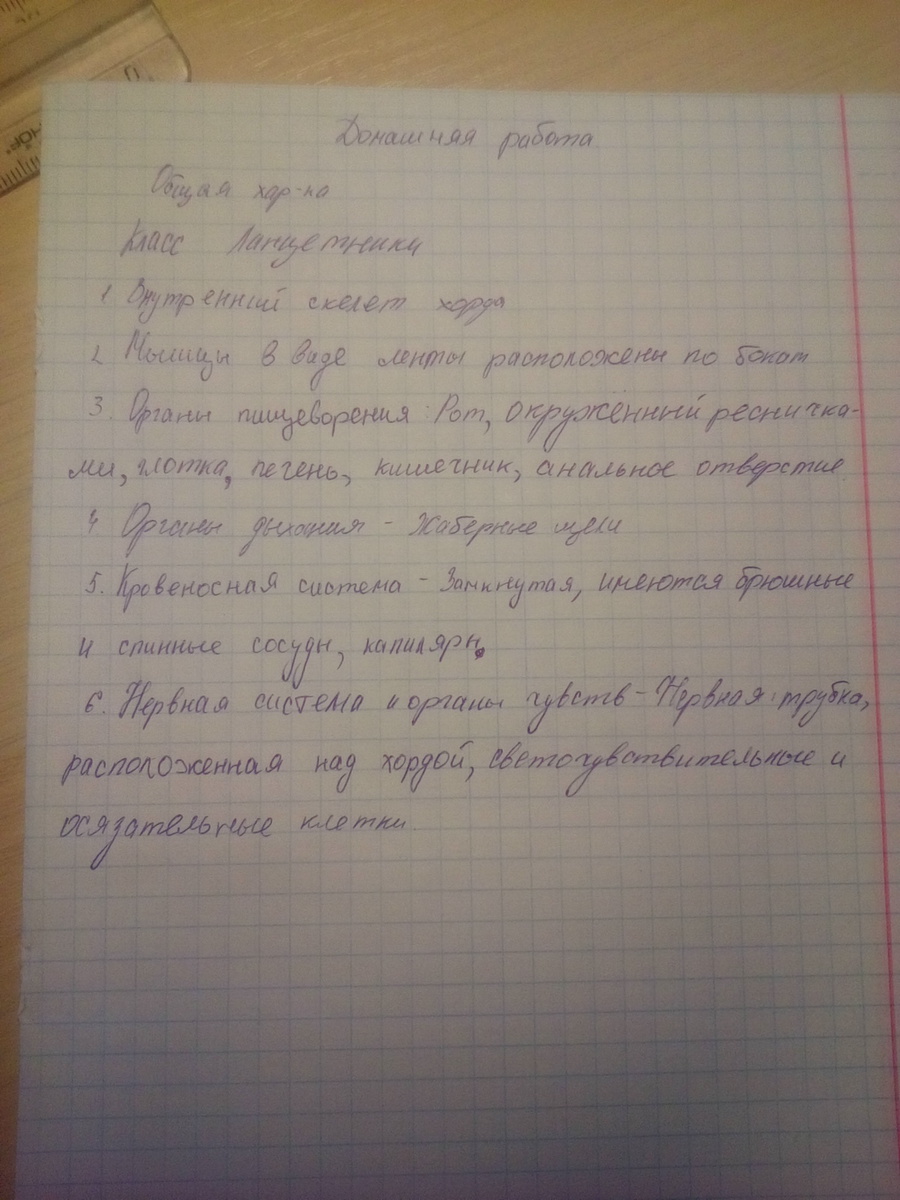 Домашняя работа
Общая хар-ка
Класс Ланцетники
1 Внутренний скелет хорда
2 Мышцы в виде ленты расположены по бокам
3. Органы пищеворения: Рот, окружённый ресничка-
ми, глотка, печень, кишечник, анальное отверстие.
4 Органы дыхания - Жаберные щели
5. Кровеносная система - Замкнутая, имеются брюшные
и спинные сосуды, капиляры.
6. Нервная система и органы чувств - Нервная трубка,
расположенная над хордой, светочувствительные и
осязательные клетки.